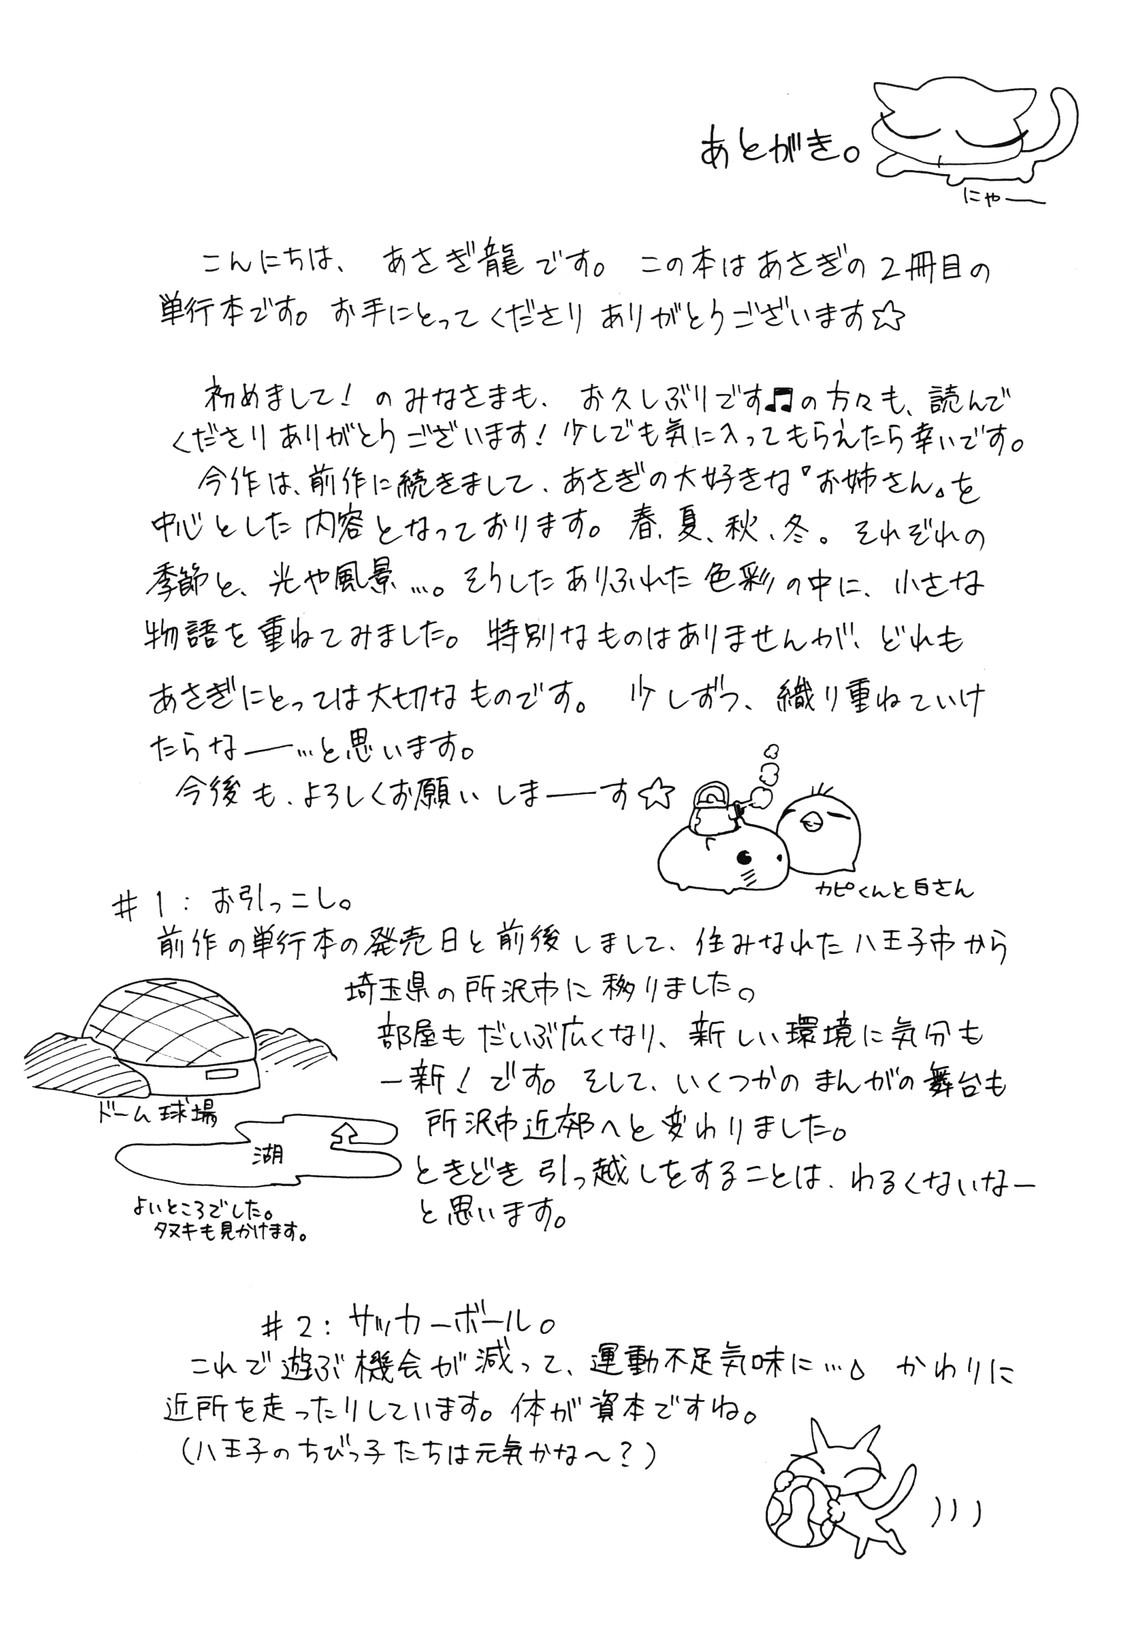 あとがき。
にゃー
こんにちは、あさぎ龍です。この本はあさぎの2冊目の
単行本です。お手にとってくださりありがとうございます☆
初めまして！のみなさまも、お久しぶりです♫の方々も、読んで
くださりありがとうございます！少しでも気に入ってもらえたら幸いです。
今作は、前作に続きまして、あさぎの大好きな『お姉さん』を
中心とした内容となっております。春、夏、秋、冬。それぞれの
季節と、光や風景…。そうしたありふれた色彩の中に、小さな
物語を重ねてみました。特別なものはありませんが、どれも
あさぎにとっては大切なものです。少しずつ、織り重ねていけ
たらなー…と思います。
今後も、よろしくお願いしまーす☆
カピくんと白さん
#1：お引っこし。
前作の単行本の発売日と前後しまして、住みなれた八王子市から
埼玉県の所沢市に移りました。
部屋もだいぶ広くなり、新しい環境に気分も
一新！です。そして、いくつかのまんがの舞台も
所沢市近郊へと変わりました。
ときどき引っ越しをすることは、わるくないなー
と思います。
ドーム球場
湖
よいところでした。
タヌキも見かけます。
#2：サッカーボール。
これで遊ぶ機会が減って、運動不足気味に…。かわりに
近所を走ったりしています。体が資本ですね。
（八王子のちびっ子たちは元気かな〜？）